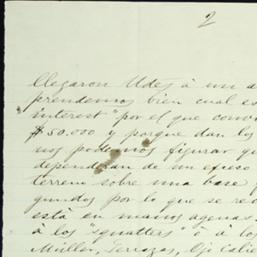 2
llegaron Udes á un a
prendemos bien cual es
interest" por el que conv
$50.000 y porque dan los
nos podemos figurar qu
dependeran de un
terreno sobre una base
gundos por lo que se re
está en manos agenas.
á los "squatters" ó á los
Müller, Terrazas, Ojo Calie